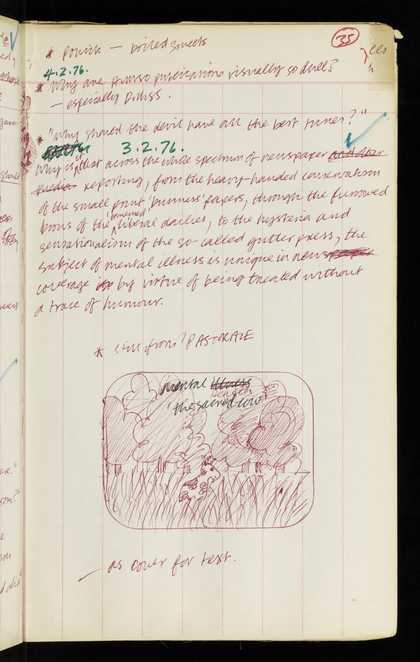 35
* POLICE — boiled sweets
4.2.76.
* Why are publications visually so dull?
— especially
* "Why should the devil have all the best tunes?"
3.2.76.
Why is it that across the whole spectrum of newspaper and other
media reporting, from the heavy-handed conservatism
of the small print 'business' papers, through the furrowed
brows of the concerned liberal dailies, to the hysteria and
sensationalism of the so-called gutter press, the
subject of mental illness is unique in news
coverage by virtue of being treated without
a trace of humour.
* still from? PASTORALE
mental illness
health
'the sacred cow'
— as cover for text.